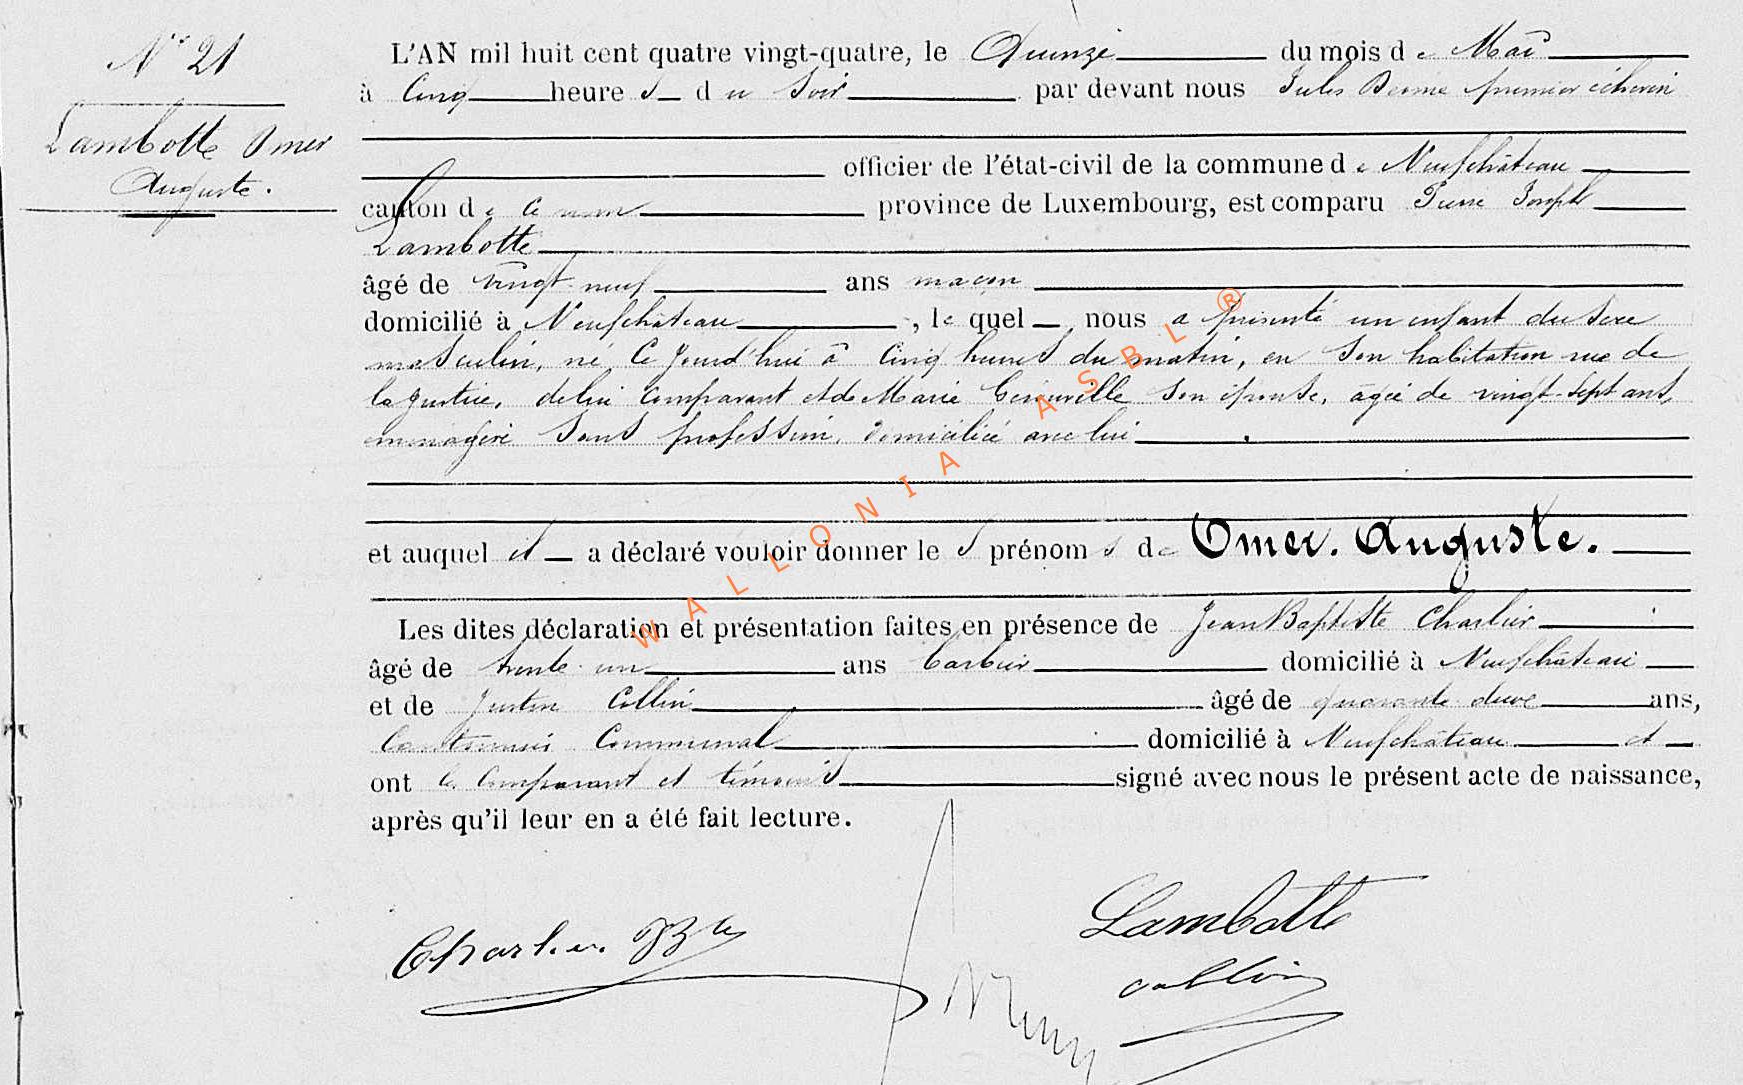 N° 21
Lambotte Omer
Auguste.
L'AN mil huit cent quatre vingt-quatre, le Quinze du mois de Mai
à Cinq heure s du Soir par devant nous Jules premier échevin
officier de l'état-civil de la commune de Neufchâteau
canton de ce nom province de Luxembourg, est comparu Pierre Joseph
Lambotte
âgé de vingt-neuf ans maçon
domicilié à Neufchâteau, le quel nous a présenté un enfant du sexe
masculin, né ce jourd'hui à cinq heures du matin, en son habitation rue de
la Justice, de lui comparant et de Marie son épouse, âgée de vingt-sept ans,
ménagère sans profession, domiciliée avec lui
et auquel il a déclaré vouloir donner le s prénom s de Omer. Auguste.
Les dites déclaration et présentation faites en présence de Jean Baptiste Charlier
âgé de trente-un ans barbier domicilié à Neufchâteau
et de Justin Collin âgé de quarante deux ans,
Cantonnier Communal domicilié à Neufchâteau et
ont le comparant et témoins signé avec nous le présent acte de naissance,
après qu'il leur en a été fait lecture.
Charlier Bte
Lambotte
Collin
WALLONIA ASBL ®